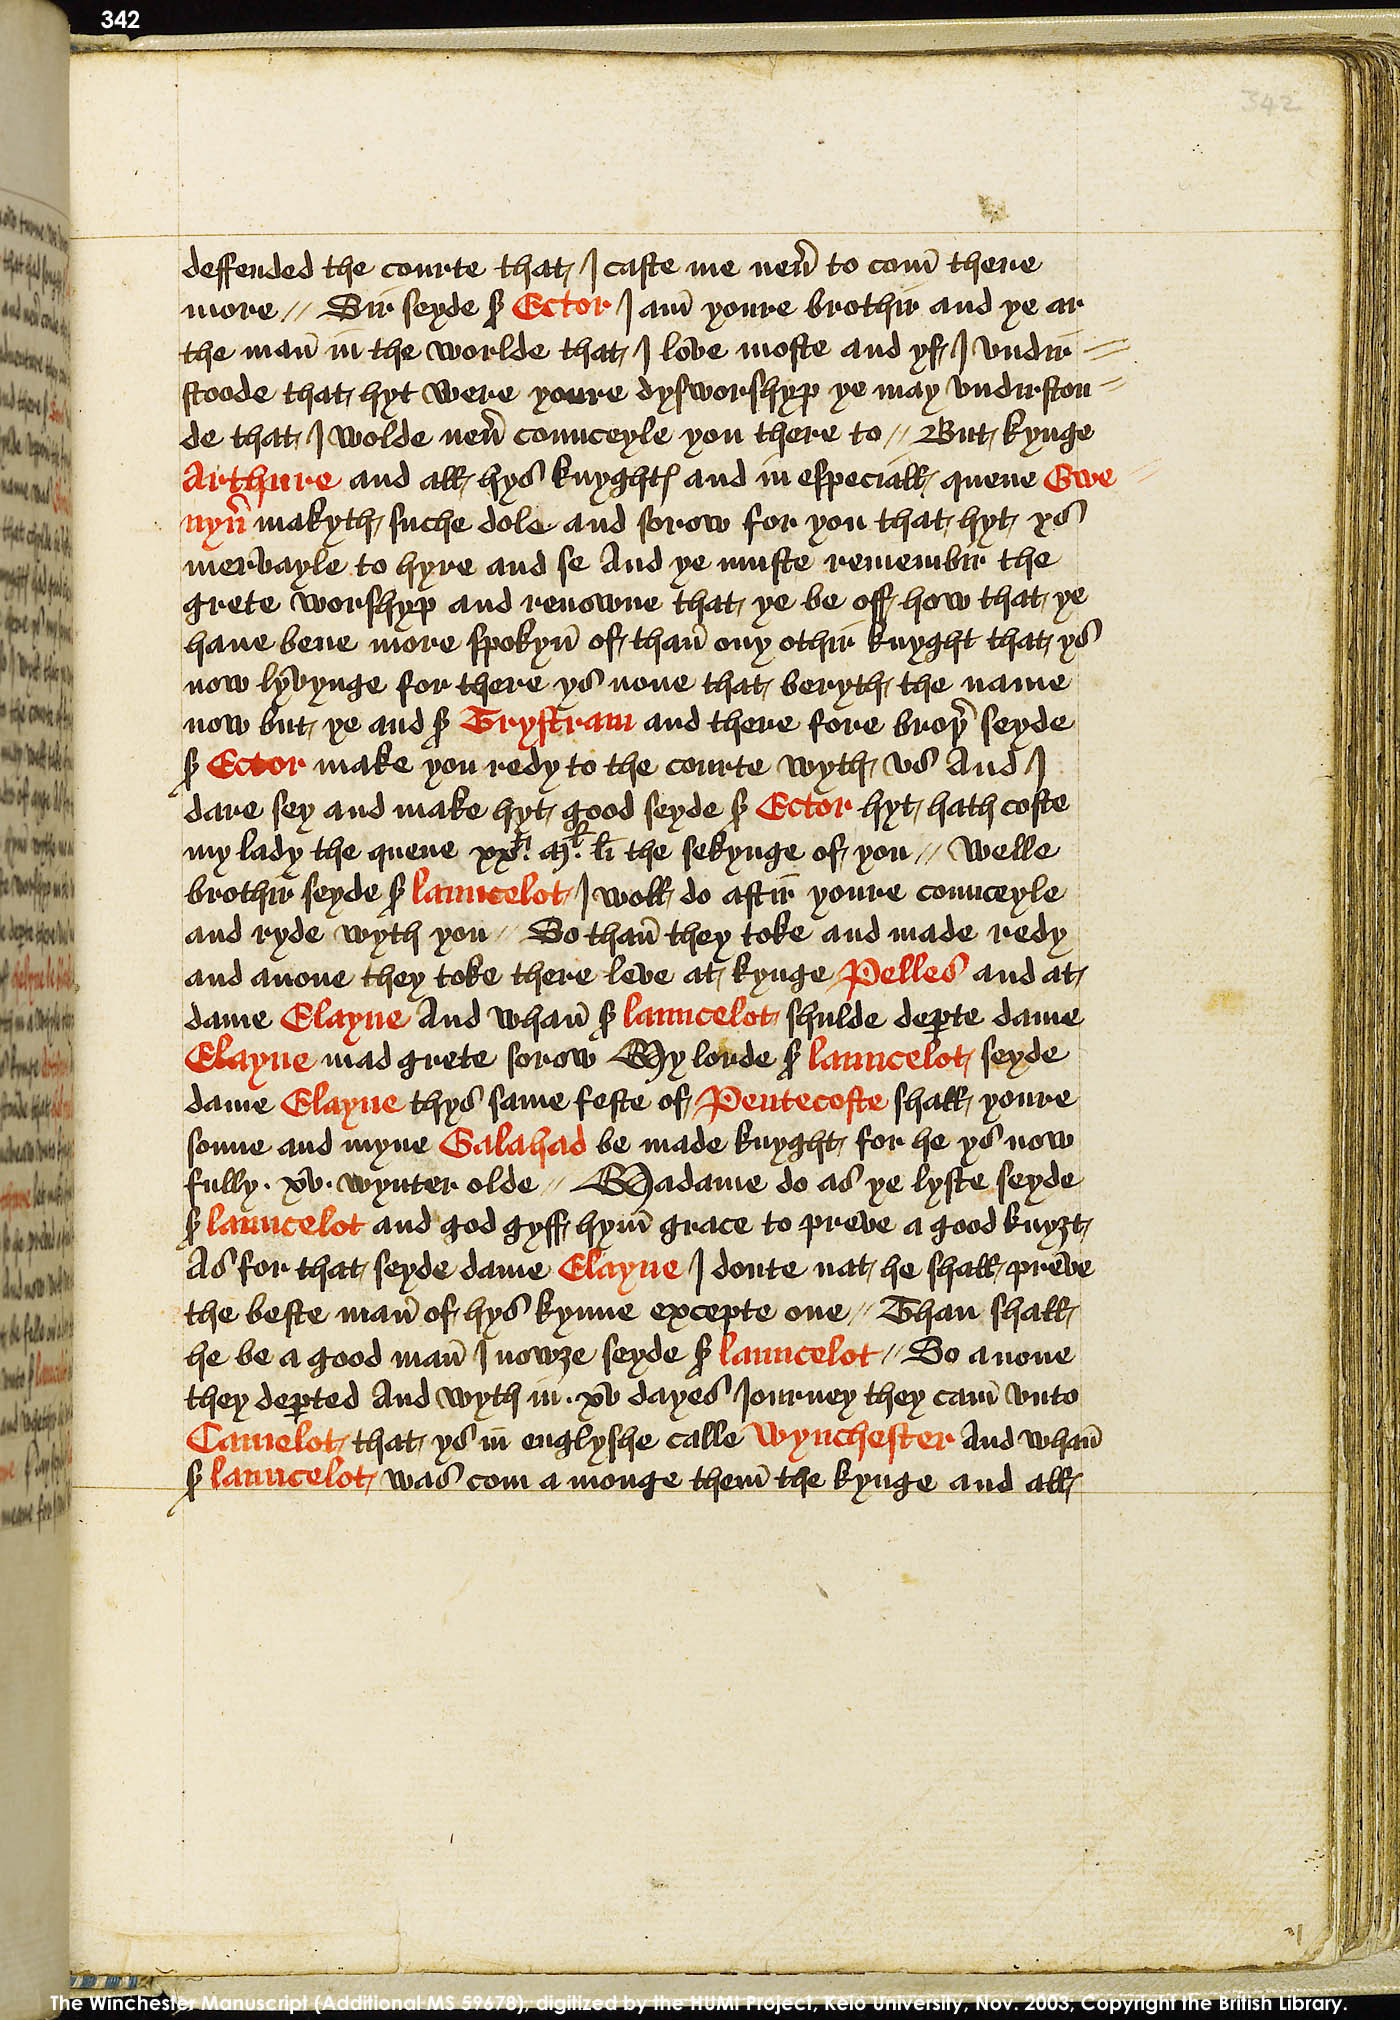 342
342
deffended the courte that I caste me neũ to com̄ there
more // Sir seyde s̉ Ector I am̄ youre brothir and ye ar
the man̄ in the worlde that I love moste and yf I vndir =
stoode that hyt were youre dysworshyp ye may vndirston =
de that I wolde neũ counceyle you there to // But kynge
Arthure and all hys knyghtꝭ and in especiall quene Gwe =
nyũ makyth suche dole and sorow for you that hyt ys
mervayle to hyre and se And ye muste remembir the
grete worshyp and renowne that ye be off how that ye
haue bene more spokyn̄ of than̄ ony othir knyght that ys
now lyvynge for there ys none that beryth the name
now but ye and s̉ Trystram and there fore broþ̉ seyde
s̉ Ector make you redy to the courte wyth vs And I
dare sey and make hyt good seyde s̉ Ector hyt hath coste
my lady the quene xxti. Ml. li the sekynge of you // Welle
brothir seyde s̉ launcelot I woll do aftir youre counceyle
and ryde wyth you // So than̄ they toke and made redy
and anone they toke there leve at kynge Pelles and at
dame Elayne And whan̄ s̉ launcelot shulde deꝑte dame
Elayne mad grete sorow My lorde s̉ launcelot seyde
dame Elayne thys same feste of Pentecoste shall youre
sonne and myne Galahad be made knyght for he ys now
fully . xv . wynter olde // Madame do as ye lyste seyde
s̉ launcelot and god gyff hym̄ grace to preve a good knyȝt
As for that seyde dame Elayne I doute nat he shall preve
the beste man̄ of hys kynne excepte one // Than shall
he be a good man̄ I nowȝe seyde s̉ launcelot // So anone
they deꝑted And wyth in . xv dayes Iourney they cam̄ vnto
Camelot that ys in englyshe calle Wynchester And whan̄
s̉ launcelot was com a monge them̄ the kynge and all
The Winchester Manuscript (Additional MS 59678); digitized by the HUMI Project, Keio University, Nov. 2003, Copyright the British Library.